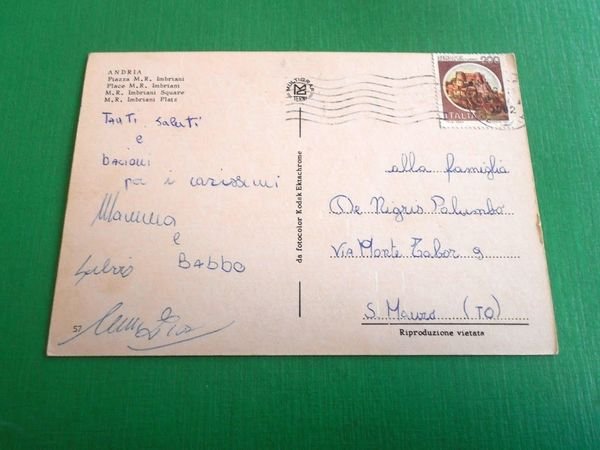 ANDRIA
Piazza M.R. Imbriani
Place M.R. Imbriani
M.R. Imbriani Square
M.R. Imbriani Platz
MULTIGRAF
TERNI
200
ITALIA
Tanti saluti
e
bacioni
per i carissimi
Mamma
e
Babbo
57
da fotocolor Kodak Ektachrome
alla famiglia
De Nigris Palumbo
Via Monte Tabor 9
S. Mauro (TO)
Riproduzione vietata